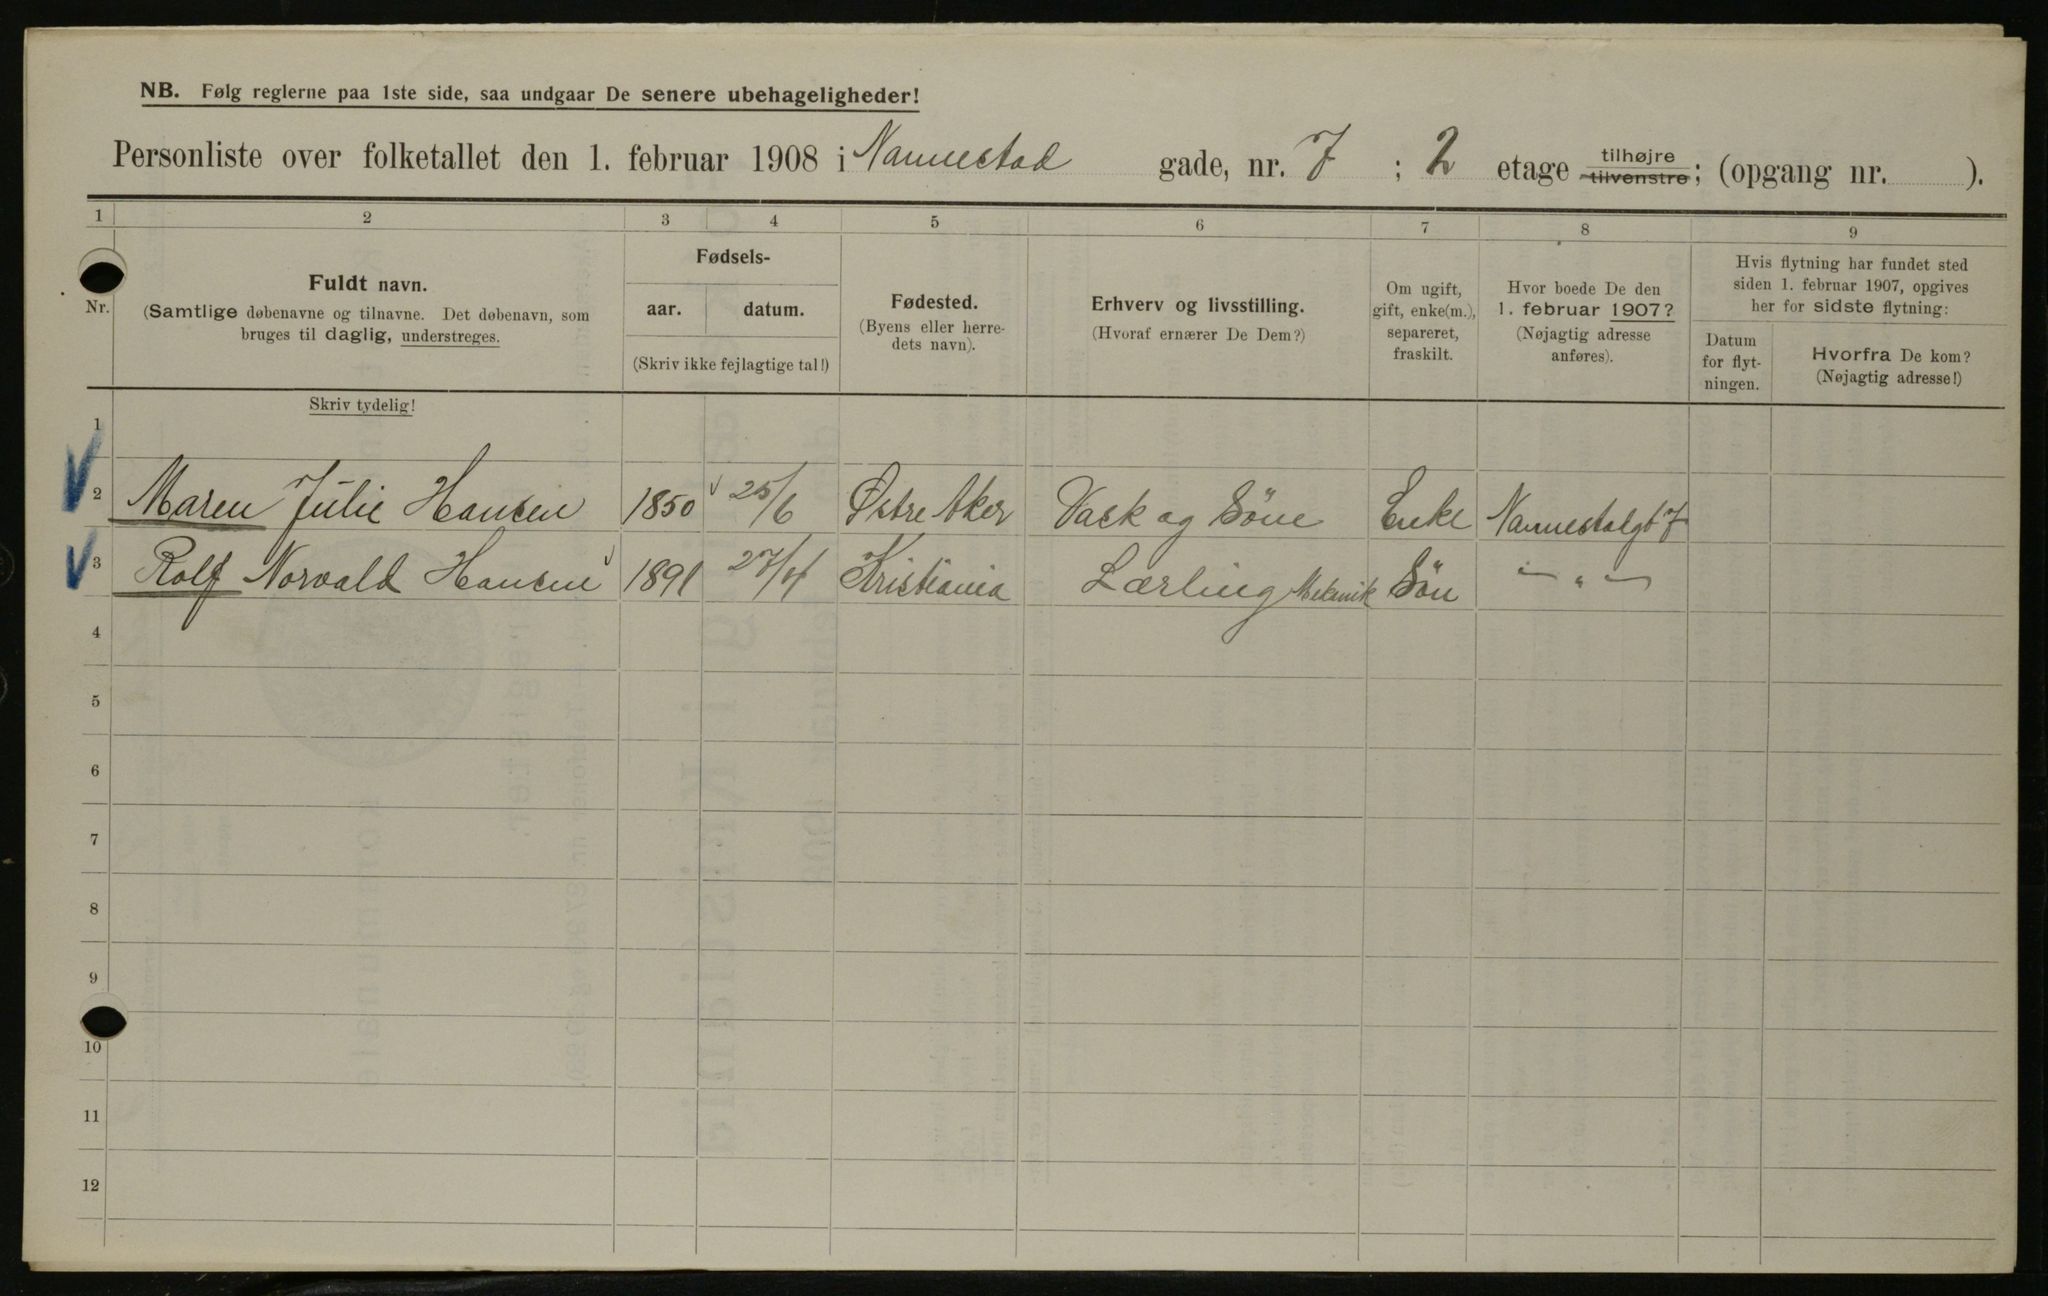 NB. Følg reglerne paa 1ste side, saa undgaar De senere ubehageligheder!
Personliste over folketallet den 1. februar 1908 i Nannestad gade, nr. 7 ; 2 etage tilhøjre tilvenstre; (opgang nr. ).
1 2 3 4 5 6 7 8 9
Nr.
Fuldt navn.
(Samtlige døbenavne og tilnavne. Det døbenavn, som
bruges til daglig, understreges.
Fødsels-
aar. datum.
(Skriv ikke fejlagtige tal!)
Fødested.
(Byens eller herre-
dets navn).
Erhverv og livsstilling.
(Hvoraf ernærer De Dem?)
Om ugift,
gift, enke(m.),
separeret,
fraskilt.
Hvor boede De den
1. februar 1907?
(Nøjagtig adresse
anføres).
Hvis flytning har fundet sted
siden 1. februar 1907, opgives
her for sidste flytning:
Datum
for flyt-
ningen.
Hvorfra De kom?
(Nøjagtig adresse!)
Skriv tydelig!
1
2 Maren Julie Hansen 1850 25/6 Østre Aker Vask og Søne Enke Nannestadgt 7
3 Rolf Norvald Hansen 1891 27/4 Kristiania Lærling Mekanik Søn — " —
4
5
6
7
8
9
10
11
12